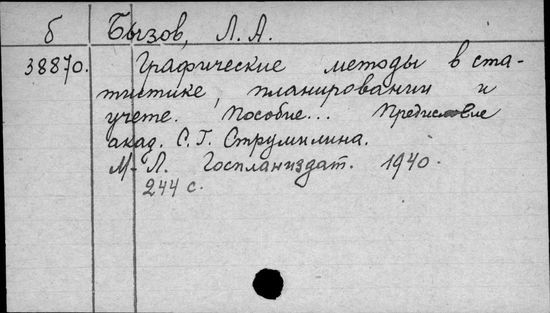 б Бызов, Л. А.
38870. Графические методы в ста-
тистике, планировании и
учете. Пособие... Предисловие
акад. С. Г. Струмилина.
М-Л. Госпланиздат. 1940.
244 с.